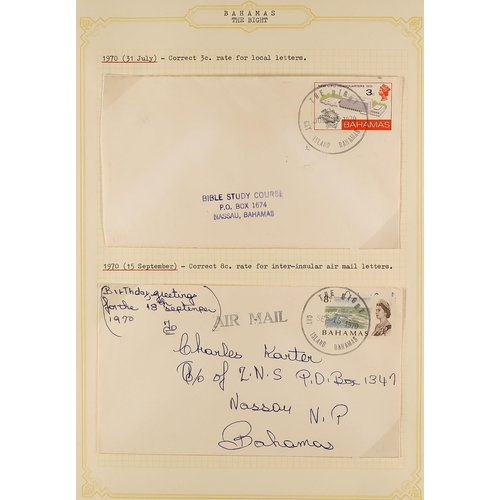 BAHAMAS
THE BIGHT
1970 (31 July) - Correct 3c. rate for local letters.
3c
BAHAMAS
THE BIGHT
1970
CAT ISLAND BAHAMAS
BIBLE STUDY COURSE
P.O. BOX 1674
NASSAU, BAHAMAS
1970 (15 September) - Correct 8c. rate for inter-insular air mail letters.
Birthday greetings
for the 18th September
1970
AIR MAIL
8c
BAHAMAS
THE BIGHT
1970
CAT ISLAND BAHAMAS
Charles Karter
C/o of Z.N.S P.O. Box 1347
Nassau N.P
Bahamas